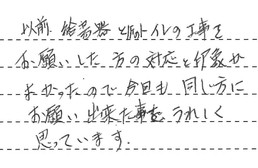 以前 給湯器とトイレの工事を
お願いした方の対応と印象が
よかったので今回も同じ方に
お願い出来た事をうれしく
思っています.